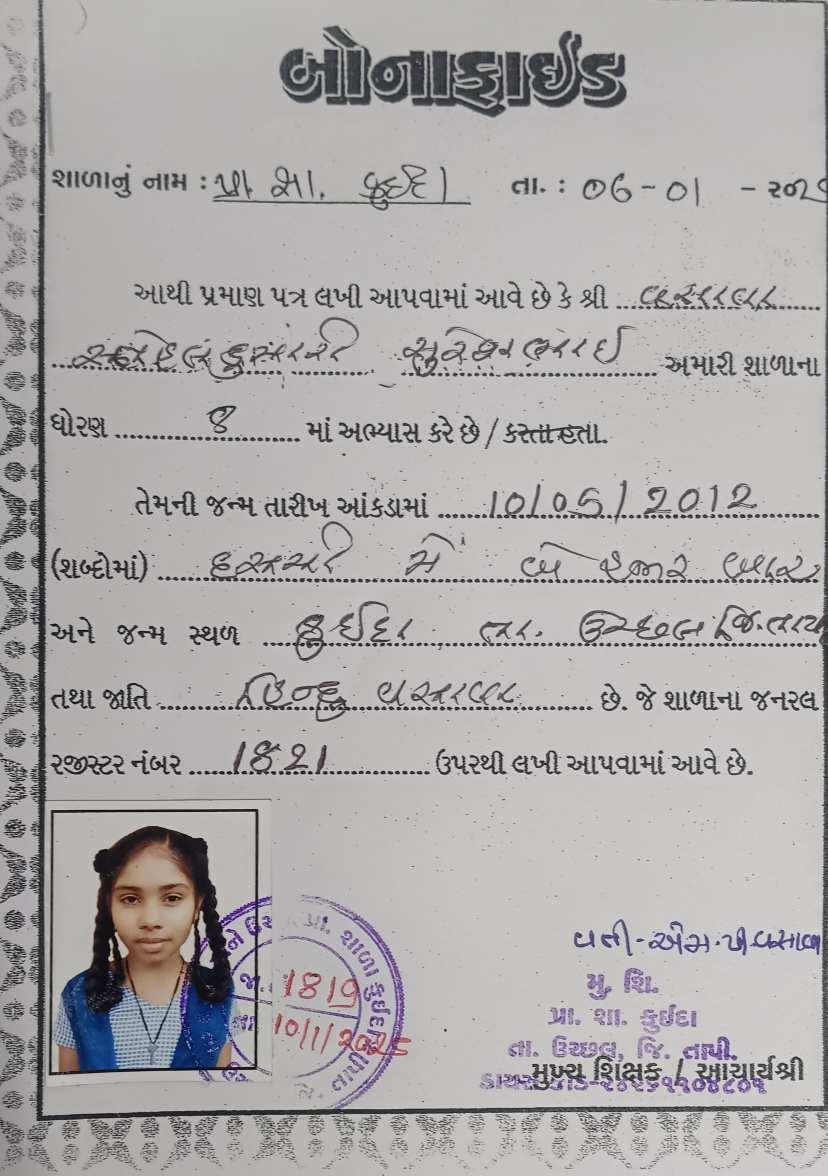 બોનાફાઈડ
શાળાનું નામ : પ્રા. શા. કુઈદા તા. : ૦6-01 -
આથી પ્રમાણ પત્ર લખી આપવામાં આવે છે કે શ્રી વસાવા
સુરેશભાઈ અમારી શાળાના
ધોરણ 8 માં અભ્યાસ કરે છે / કરતા હતા.
તેમની જન્મ તારીખ આંકડામાં 10/05/2012
(શબ્દોમાં) દસમી મે બે હજાર બાર
અને જન્મ સ્થળ કુઈદા તા. ઉચ્છલ જિ.
તથા જાતિ હિન્દુ વસાવા છે. જે શાળાના જનરલ
રજીસ્ટર નંબર 1821 ઉપરથી લખી આપવામાં આવે છે.
પ્રા. શાળા કુઈદા
જા. 1819
10/1/2025
મુ. શિ.
પ્રા. શા. કુઈદા
તા. ઉચ્છલ, જિ. તાપી.
મુખ્ય શિક્ષક / આચાર્યશ્રી